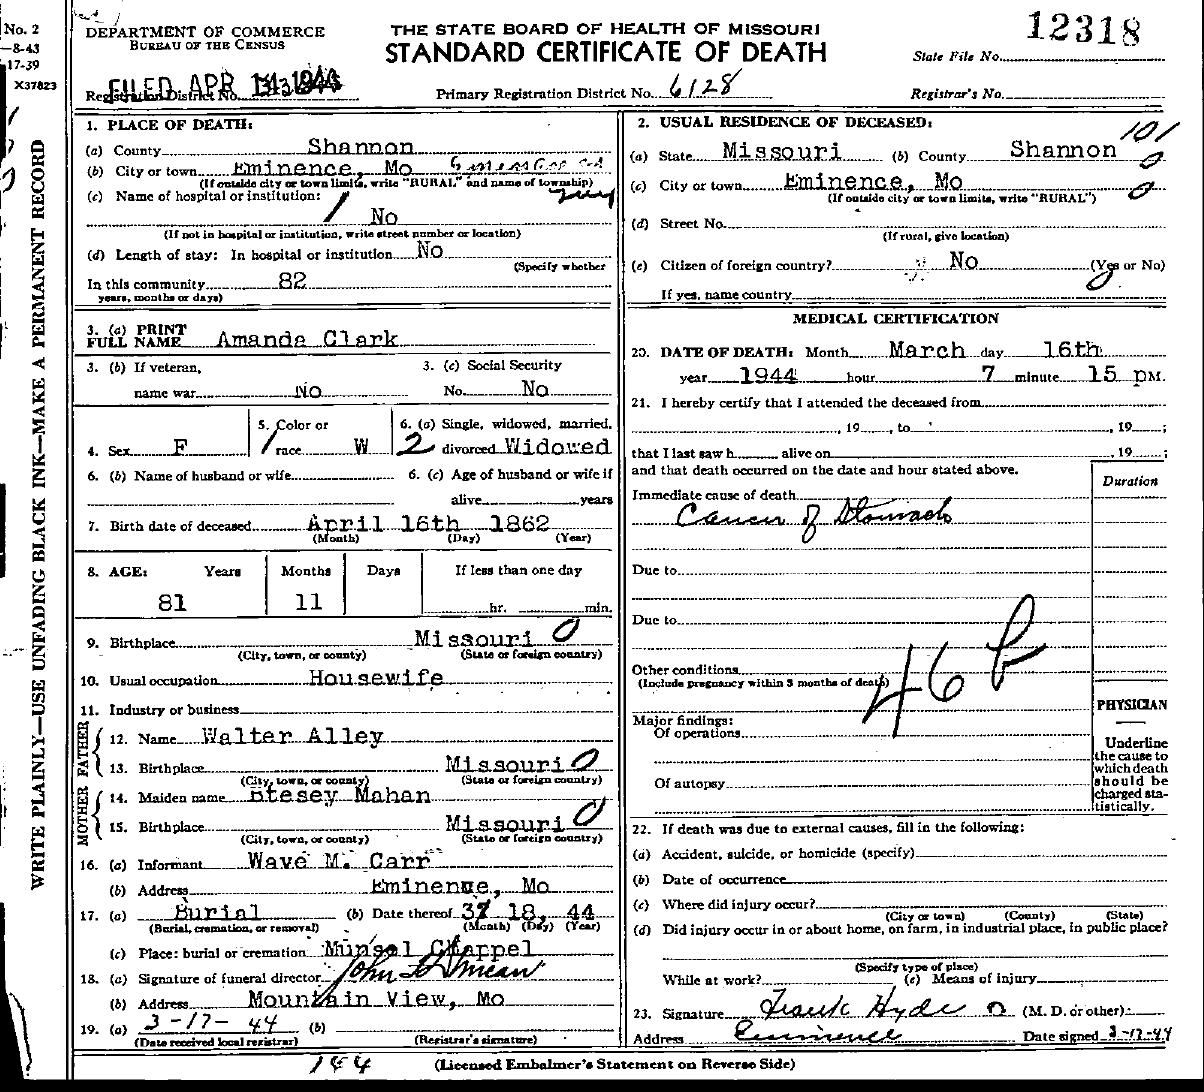 No. 2
—8-43
17-39
X37823
WRITE PLAINLY—USE UNFADING BLACK INK—MAKE A PERMANENT RECORD
DEPARTMENT OF COMMERCE
BUREAU OF THE CENSUS
THE STATE BOARD OF HEALTH OF MISSOURI
STANDARD CERTIFICATE OF DEATH
12318
State File No.
FILED APR 1944
Registration District No.
Primary Registration District No. 6128
Registrar's No.
1. PLACE OF DEATH:
(a) County Shannon
(b) City or town Eminence, Mo
(If outside city or town limits, write "RURAL" and name of township)
(c) Name of hospital or institution:
No
(If not in hospital or institution, write street number or location)
(d) Length of stay: In hospital or institution No
(Specify whether
In this community 82
years, months or days)
2. USUAL RESIDENCE OF DECEASED:
101
(a) State Missouri (b) County Shannon 0
(c) City or town Eminence, Mo 0
(If outside city or town limits, write "RURAL")
(d) Street No.
(If rural, give location)
(e) Citizen of foreign country? No (Yes or No)
0
If yes, name country
3. (a) PRINT
FULL NAME Amanda Clark
3. (b) If veteran,
name war No
3. (c) Social Security
No. No
4. Sex F
5. Color or
race W
6. (a) Single, widowed, married,
2 divorced Widowed
6. (b) Name of husband or wife
6. (c) Age of husband or wife if
alive years
7. Birth date of deceased April 16th 1862
(Month) (Day) (Year)
8. AGE: Years Months Days If less than one day
81 11 hr. min.
9. Birthplace Missouri 0
(City, town, or county) (State or foreign country)
10. Usual occupation Housewife
11. Industry or business
FATHER
12. Name Walter Alley
13. Birthplace Missouri 0
(City, town, or county) (State or foreign country)
MOTHER
14. Maiden name Etesey Mahan
15. Birthplace Missouri 0
(City, town, or county) (State or foreign country)
16. (a) Informant Wave M. Carr
(b) Address Eminence, Mo
17. (a) Burial (b) Date thereof 3 18, 44
(Burial, cremation, or removal) (Month) (Day) (Year)
(c) Place: burial or cremation Munsel Chappel
18. (a) Signature of funeral director John
(b) Address Mountain View, Mo
19. (a) 3-17-44 (b)
(Date received local registrar) (Registrar's signature)
MEDICAL CERTIFICATION
20. DATE OF DEATH: Month March day 16th
year 1944 hour 7 minute 15 pM.
21. I hereby certify that I attended the deceased from
, 19 , to , 19 ;
that I last saw h alive on , 19 ;
and that death occurred on the date and hour stated above.
Duration
Immediate cause of death
Cancer of Stomach
Due to
Due to
46 b
Other conditions
(Include pregnancy within 3 months of death)
Major findings:
Of operations
Of autopsy
PHYSICIAN
Underline
the cause to
which death
should be
charged sta-
tistically.
22. If death was due to external causes, fill in the following:
(a) Accident, suicide, or homicide (specify)
(b) Date of occurrence
(c) Where did injury occur?
(City or town) (County) (State)
(d) Did injury occur in or about home, on farm, in industrial place, in public place?
(Specify type of place)
While at work? (e) Means of injury
23. Signature Frank Hyde (M. D. or other)
Address Eminence Date signed 3-17-44
144
(Licensed Embalmer's Statement on Reverse Side)